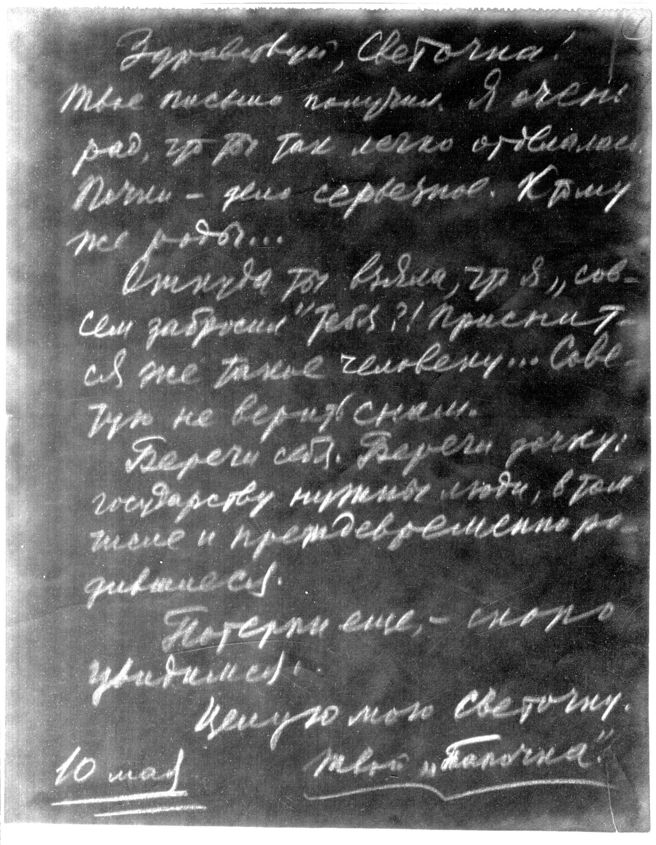 Здравствуй, Светочка!
Твое письмо получил. Я очень
рад, что ты так легко отделалась.
Почки – дело серьезное. К тому
же роды...
Откуда ты взяла, что я „сов-
сем забросил" тебя?! Приснит-
ся же такое человеку... Сове-
тую не верить снам.
Береги себя. Береги дочку:
государству нужны люди, в том
числе и преждевременно ро-
дившиеся.
Потерпи еще, – скоро
увидимся.
Целую мою светочку.
10 мая Твой „Папочка".